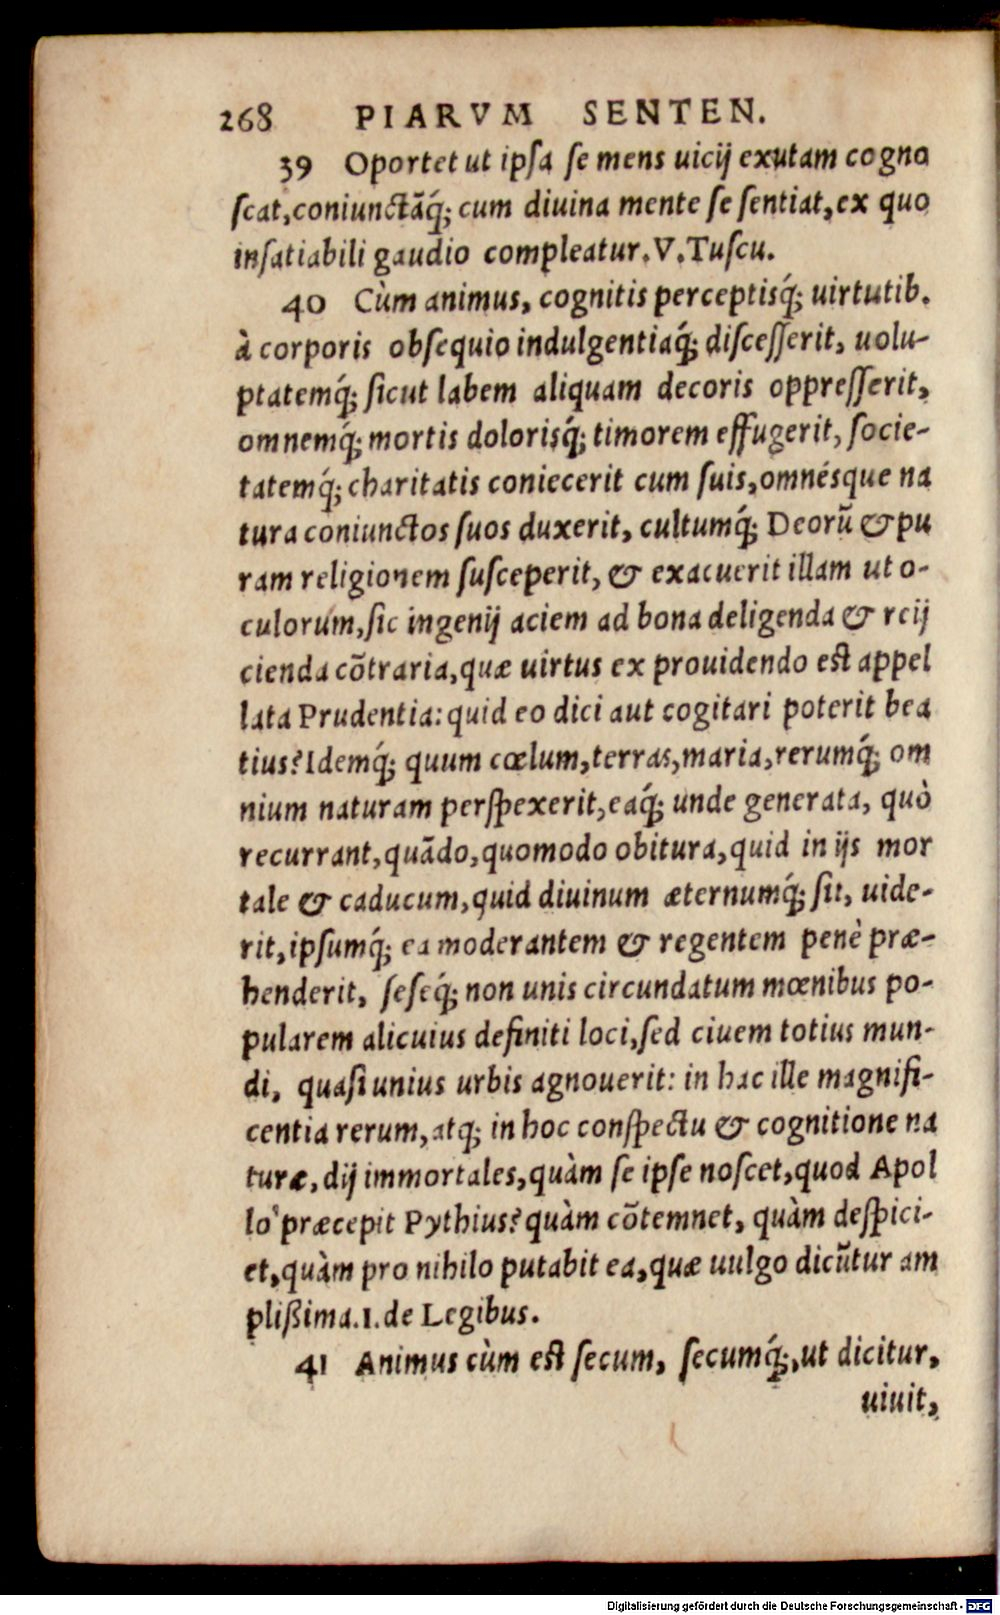 268 PIARVM SENTEN.
39 Oportet ut ipſa ſe mens uicij exutam cogno
ſcat, coniunctãq́; cum diuina mente ſe ſentiat, ex quo
inſatiabili gaudio compleatur. V. Tuſcu.
40 Cùm animus, cognitis perceptisq́; uirtutib.
à corporis obſequio indulgentiaq́; diſceſſerit, uolu-
ptatemq́; ſicut labem aliquam decoris oppreſſerit,
omnemq́; mortis dolorisq́; timorem effugerit, ſocie-
tatemq́; charitatis coniecerit cum ſuis, omnésque na
tura coniunctos ſuos duxerit, cultumq́; Deorũ & pu
ram religionem ſuſceperit, & exacuerit illam ut o-
culorum, ſic ingenij aciem ad bona deligenda & reij
cienda cõtraria, quæ uirtus ex prouidendo eſt appel
lata Prudentia: quid eo dici aut cogitari poterit bea
tius? Idemq́; quum cœlum, terras, maria, rerumq́; om
nium naturam perſpexerit, eaq́; unde generata, quò
recurrant, quãdo, quomodo obitura, quid in ijs mor
tale & caducum, quid diuinum æternumq́; ſit, uide-
rit, ipſumq́; ea moderantem & regentem penè præ-
henderit, ſeſeq́; non unis circundatum mœnibus po-
pularem alicuius definiti loci, ſed ciuem totius mun-
di, quaſi unius urbis agnouerit: in hac ille magnifi-
centia rerum, atq; in hoc conſpectu & cognitione na
turæ, dij immortales, quàm ſe ipſe noſcet, quod Apol
lo præcepit Pythius? quàm cõtemnet, quàm deſpici-
et, quàm pro nihilo putabit ea, quæ uulgo dicũtur am
plißima. 1. de Legibus.
41 Animus cùm eſt ſecum, ſecumq́;, ut dicitur,
uiuit,
Digitalisierung gefördert durch die Deutsche Forschungsgemeinschaft - DFG